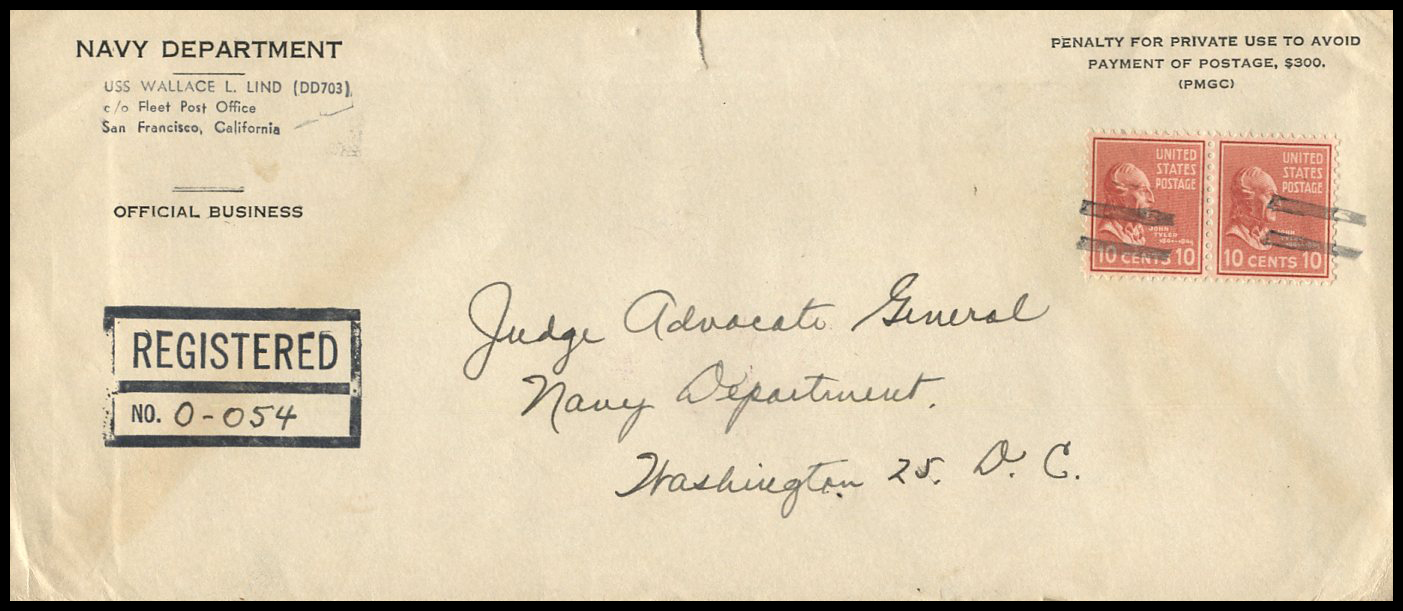 NAVY DEPARTMENT
USS WALLACE L. LIND (DD703)
c/o Fleet Post Office
San Francisco, California
OFFICIAL BUSINESS
PENALTY FOR PRIVATE USE TO AVOID
PAYMENT OF POSTAGE, $300.
(PMGC)
UNITED
STATES
POSTAGE
JOHN
TYLER
10 CENTS 10
UNITED
STATES
POSTAGE
JOHN
TYLER
10 CENTS 10
REGISTERED
NO. 0-054
Judge Advocate General
Navy Department.
Washington 25. D. C.